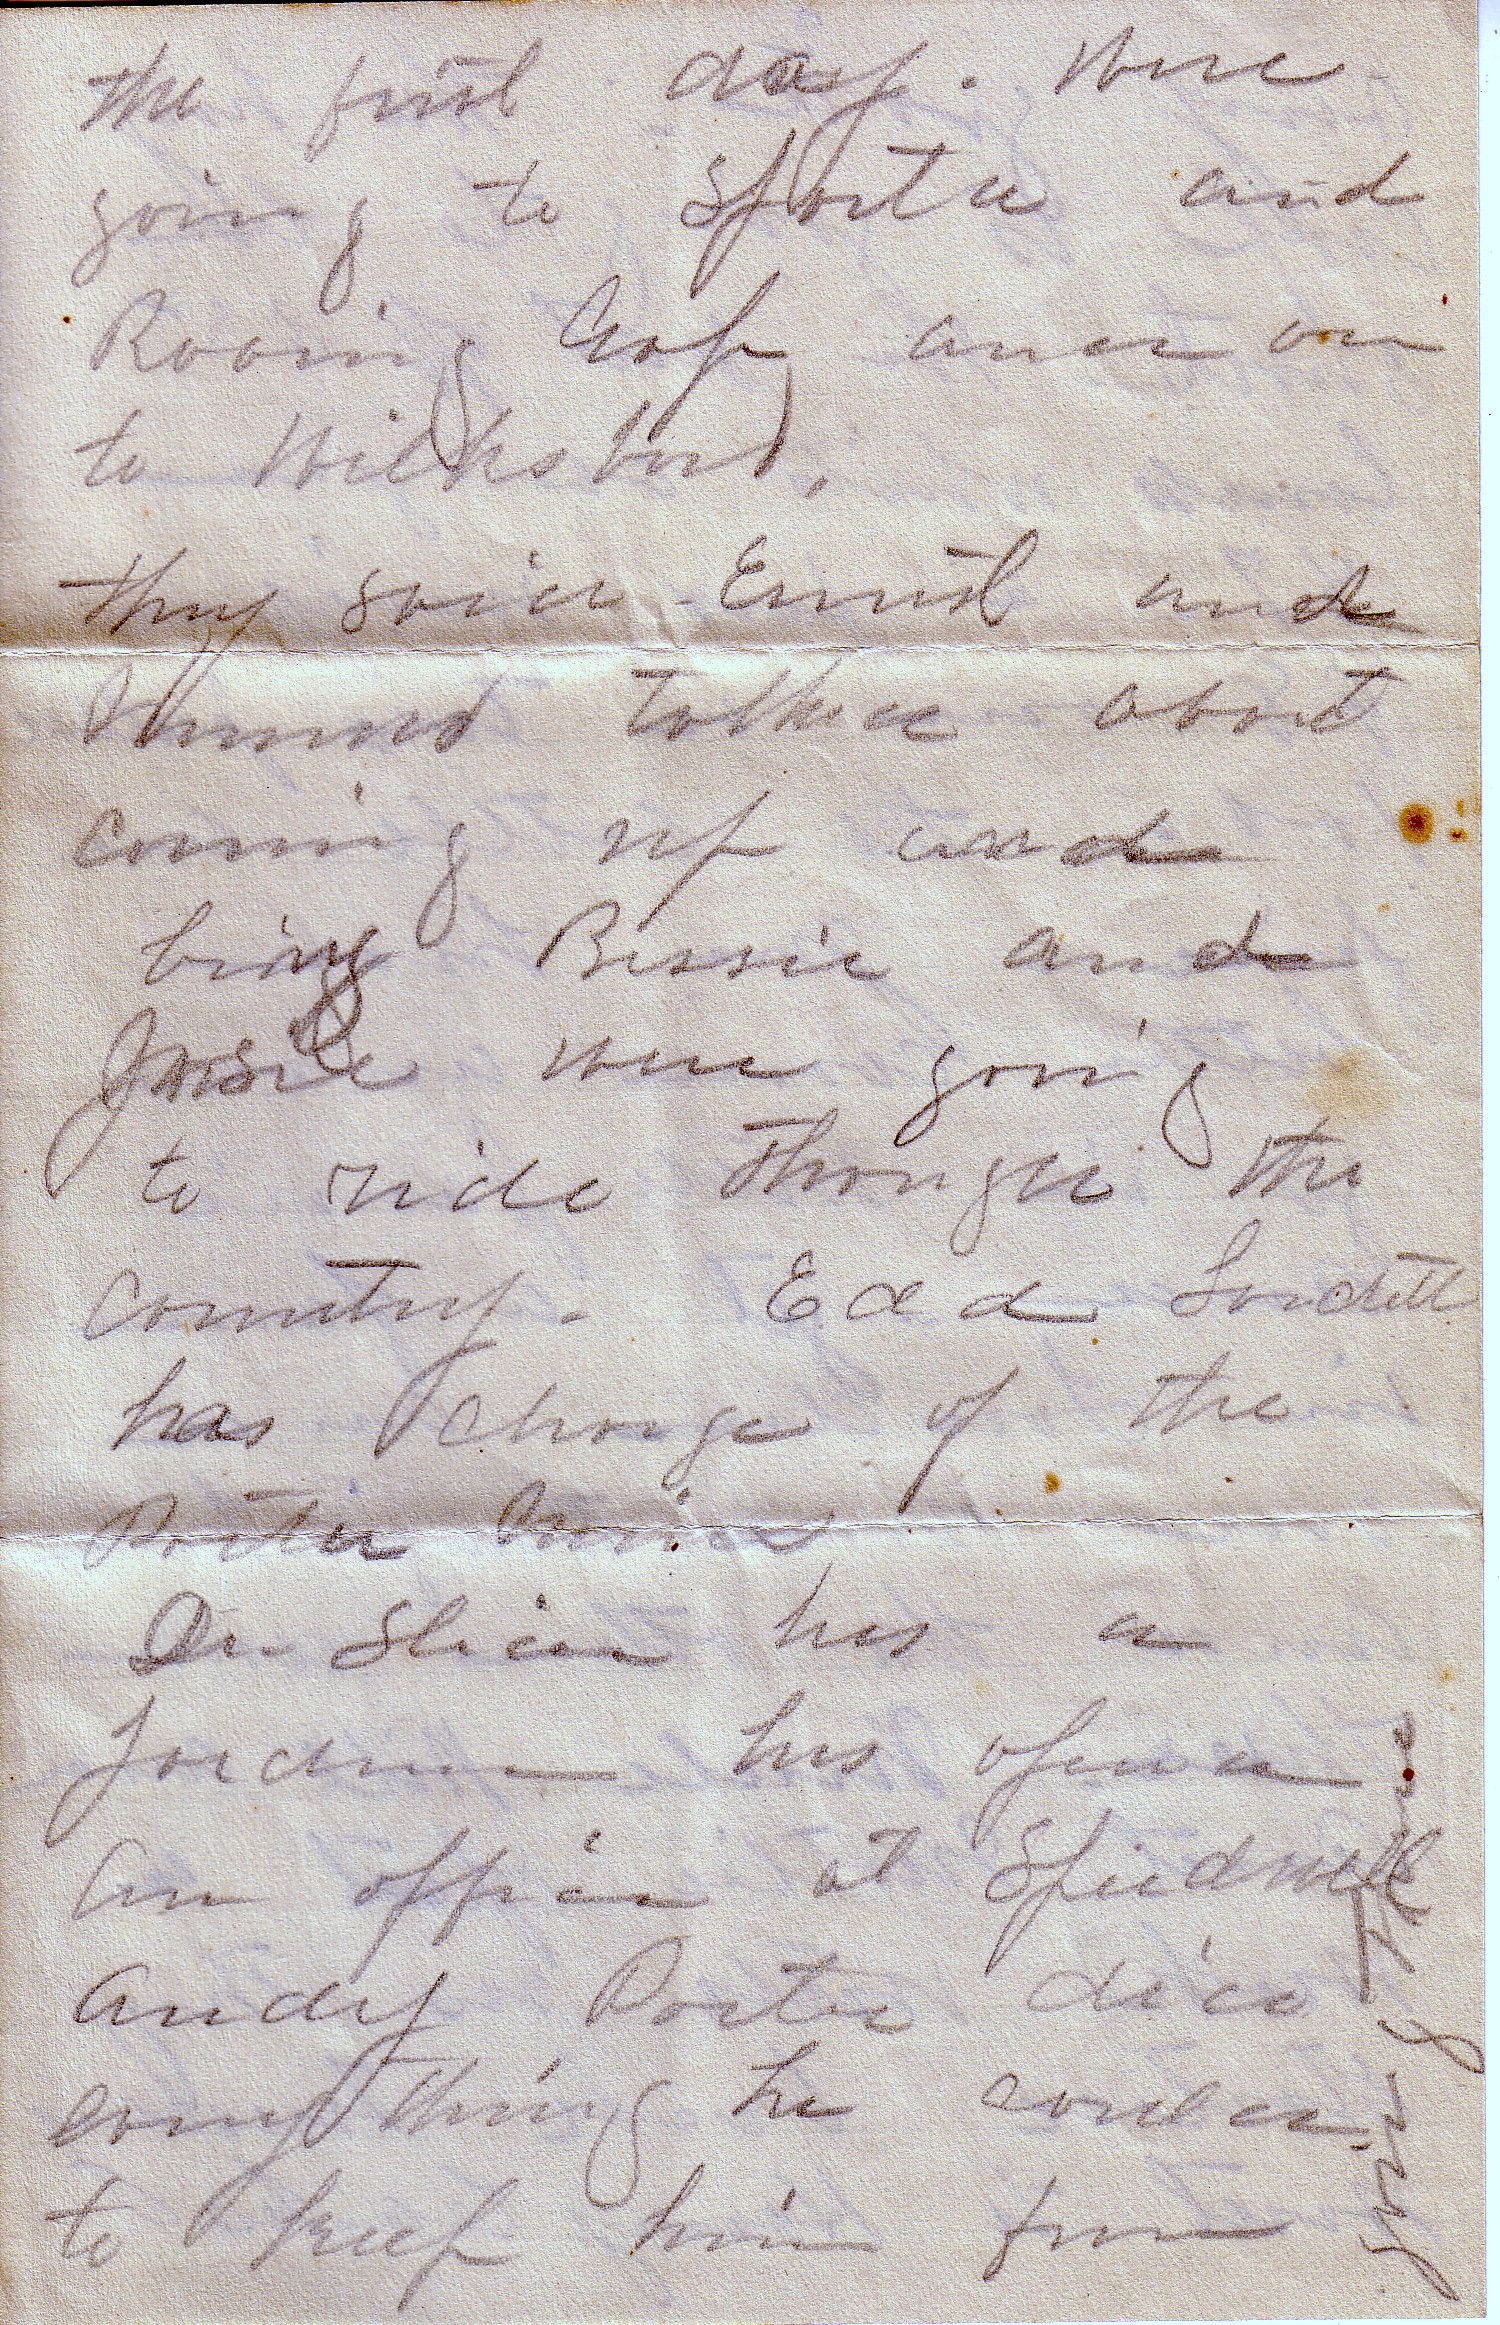 the first day. Were
going to Sparta and
Roaring Gap and on
to Wilksburd,
they said Ernest and
talked about
coming up and
bring Bessie and
Josie were going
to ride through the
Country. Edd
has charge of the
Porter
Dr. has a
Jordan has opened
an office at Speedwell
Andy Porter did
everything he could
to keep him from